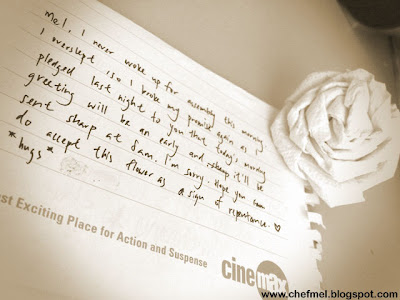 Mel, I never woke up for
assembly this morning.
I overslept :so I broke my promise again as I
pledged last night to you that today's morning
greeting will be an early and it'll be
sent sharp at 6am. I'm sorry. Hope you can
do accept this flower as a sign of repentance. ♡
*hugs*
st Exciting Place for Action and Suspense
cinemax
www.chefmel.blogspot.com